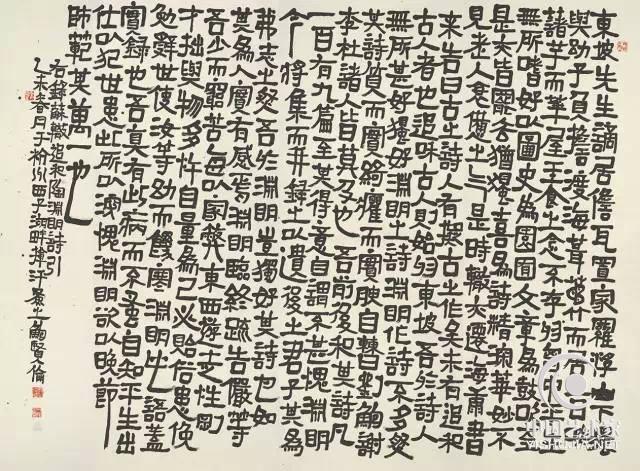 東坡先生謫居儋耳置家羅浮山下獨
與幼子負擔渡海葺茅竹而居之日啖
藷芋而華屋玉食之念不存於胸中平生
無所嗜好以圖史為園囿文章為鼓吹至
是亦皆罷去猶獨喜為詩精深華妙不
見老人衰憊之氣是時轍亦遷海康書
来告曰古之詩人有擬古之作矣未有追和
古人者也追和古人則始於東坡吾於詩人
無所甚好獨好淵明之詩淵明作詩不多然
其詩質而實綺癯而實腴自曹劉鮑謝
李杜諸人皆莫及也吾前後和其詩凡
一百有九篇至其得意自謂不甚愧淵明
今將集而并録之以遺後之君子其為
我志之然吾於淵明豈獨好其詩也如
其為人實有感焉淵明臨終疏告儼等
吾少而窮苦每以家弊東西遊走性剛
才拙與物多忤自量為己必貽俗患俛
勉辭世使汝等幼而饑寒淵明此語蓋
實録也吾真有此病而不蚤自知平生出
仕以犯世患此所以深愧淵明欲以晚節
師範其萬一也
右録蘇轍追和陶淵明詩引
乙未春月于杭州西子湖畔揮汗 鮑賢倫
中国艺术家
YISHUJIA.NET